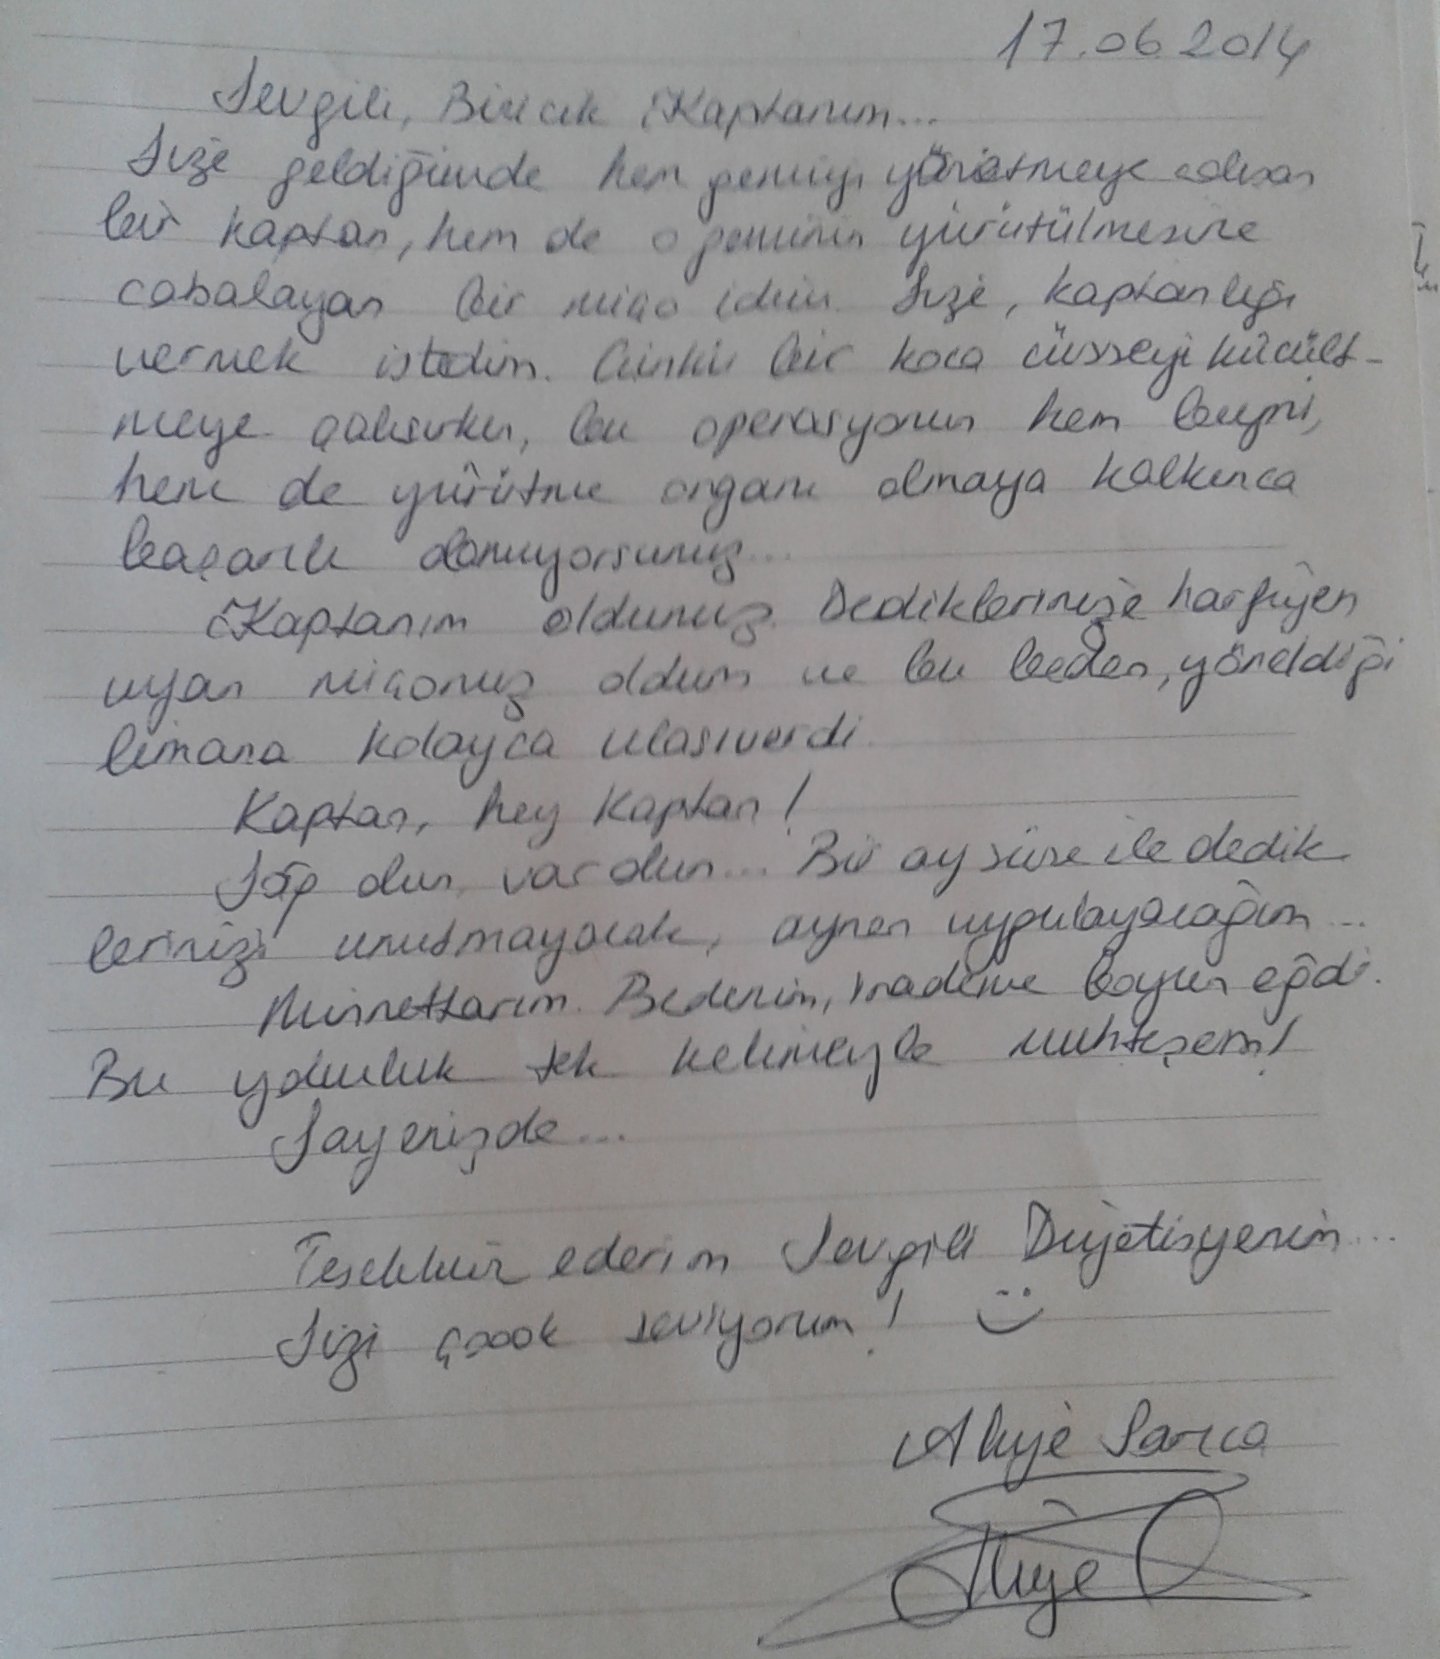 17.06.2014
Sevgili, Biricik Kaptanım...
Size geldiğimde hem gemiyi yürütmeye çalışan
bir kaptan, hem de o geminin yürütülmesine
çabalayan bir miço idim. Size, kaptanlığı
vermek istedim. Çünkü bir koca cüsseyi küçült-
meye çalışırken, bu operasyonun hem beyni,
hem de yürütme organı olmaya kalkınca
başarılı olamıyorsunuz...
Kaptanım oldunuz. Dediklerinize harfiyen
uyan miçonuz oldum ve bu beden, yöneldiği
limana kolayca ulaşıverdi.
Kaptan, hey Kaptan!
Sağ olun, var olun... Bir ay süre ile dedik
lerinizi unutmayacak, aynen uygulayacağım...
Minnettarım. Bedenim, irademe boyun eğdi.
Bu yolculuk tek kelimeyle muhteşem!
Sayenizde...
Teşekkür ederim Sevgili Diyetisyenim...
Sizi çoook seviyorum!
Aliye Sarıca
Aliye